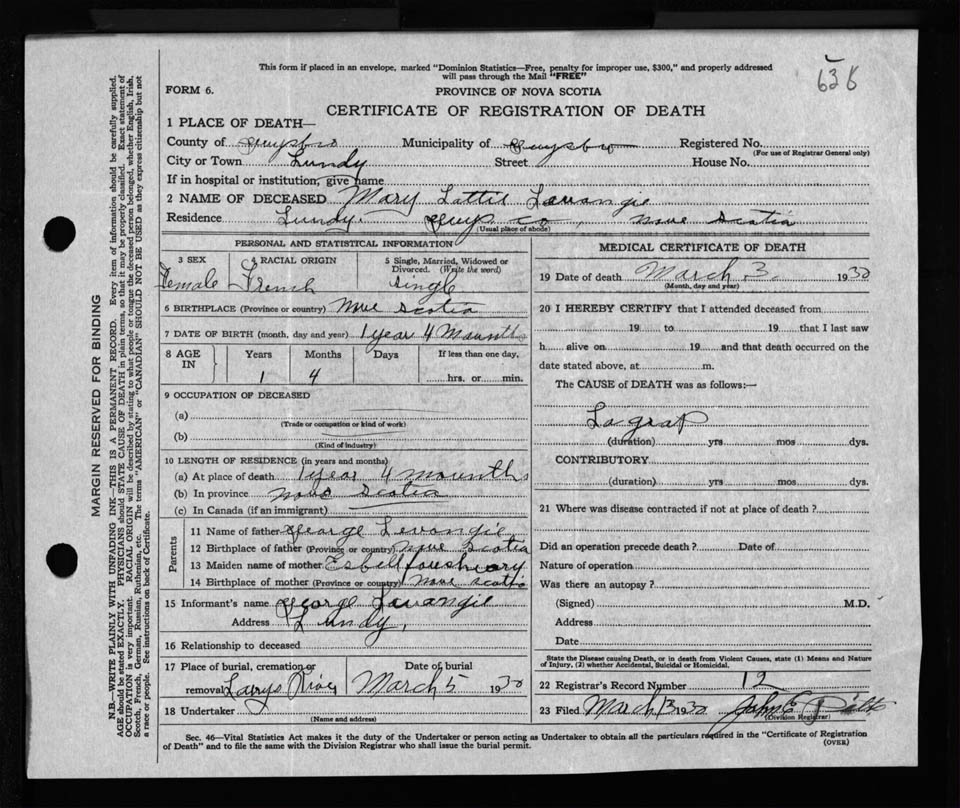 This form if placed in an envelope, marked "Dominion Statistics—Free, penalty for improper use, $300," and properly addressed
will pass through the Mail "FREE"
638
FORM 6.
PROVINCE OF NOVA SCOTIA
CERTIFICATE OF REGISTRATION OF DEATH
1 PLACE OF DEATH—
County of Guysbro Municipality of Guysbro Registered No.
(For use of Registrar General only)
City or Town Lundy Street House No.
If in hospital or institution, give name
2 NAME OF DECEASED Mary Lattie Lavangie
Residence Lundy. Guys co, Nove Scotia
(Usual place of abode)
PERSONAL AND STATISTICAL INFORMATION
3 SEX
Female
4 RACIAL ORIGIN
French
5 Single, Married, Widowed or
Divorced. (Write the word)
Single
6 BIRTHPLACE (Province or country) Nove Scotia
7 DATE OF BIRTH (month, day and year) 1 year 4 Mounths
8 AGE
IN
Years Months Days If less than one day.
1 4 hrs. or min.
9 OCCUPATION OF DECEASED
(a)
(Trade or occupation or kind of work)
(b)
(Kind of industry)
10 LENGTH OF RESIDENCE (in years and months)
(a) At place of death 1 year 4 mounths
(b) In province Nove Scotia
(c) In Canada (if an immigrant)
Parents
11 Name of father George Levangie
12 Birthplace of father (Province or country) Nove Scotia
13 Maiden name of mother
14 Birthplace of mother (Province or country) Nove Scotia
15 Informant's name George Lavangie
Address Lundy,
16 Relationship to deceased
17 Place of burial, cremation or
removal Larrys River
Date of burial
March 5 1930
18 Undertaker
(Name and address)
MEDICAL CERTIFICATE OF DEATH
19 Date of death March 3. 1930
(Month, day and year)
20 I HEREBY CERTIFY that I attended deceased from
19 to 19 that I last saw
h alive on 19 and that death occurred on the
date stated above, at m.
The CAUSE of DEATH was as follows:—
Lagrap
(duration) yrs mos dys.
CONTRIBUTORY
(duration) yrs mos dys.
21 Where was disease contracted if not at place of death?
Did an operation precede death? Date of
Nature of operation
Was there an autopay?
(Signed) M.D.
Address
Date
State the Disease causing Death, or in death from Violent Causes, state (1) Means and Nature
of Injury, (2) whether Accidental, Suicidal or Homicidal.
22 Registrar's Record Number 12
23 Filed March 13 1930 John E
(Division Registrar)
Sec. 46—Vital Statistics Act makes it the duty of the Undertaker or person acting as Undertaker to obtain all the particulars required in the "Certificate of Registration
of Death" and to file the same with the Division Registrar who shall issue the burial permit.
(OVER)
MARGIN RESERVED FOR BINDING
N.B.—WRITE PLAINLY WITH UNFADING INK—THIS IS A PERMANENT RECORD. Every item of information should be carefully supplied.
AGE should be stated EXACTLY. PHYSICIANS should STATE CAUSE OF DEATH in plain terms, so that it may be properly classified. Exact statement of
OCCUPATION is very important. RACIAL ORIGIN will be described by stating to what people or tongue the deceased person belonged, whether English, Irish,
Scotch, French, German, Russian, Ruthenian, etc. The terms "AMERICAN" or "CANADIAN" SHOULD NOT BE USED as they express citizenship but not
a race or people. See instructions on back of Certificate.